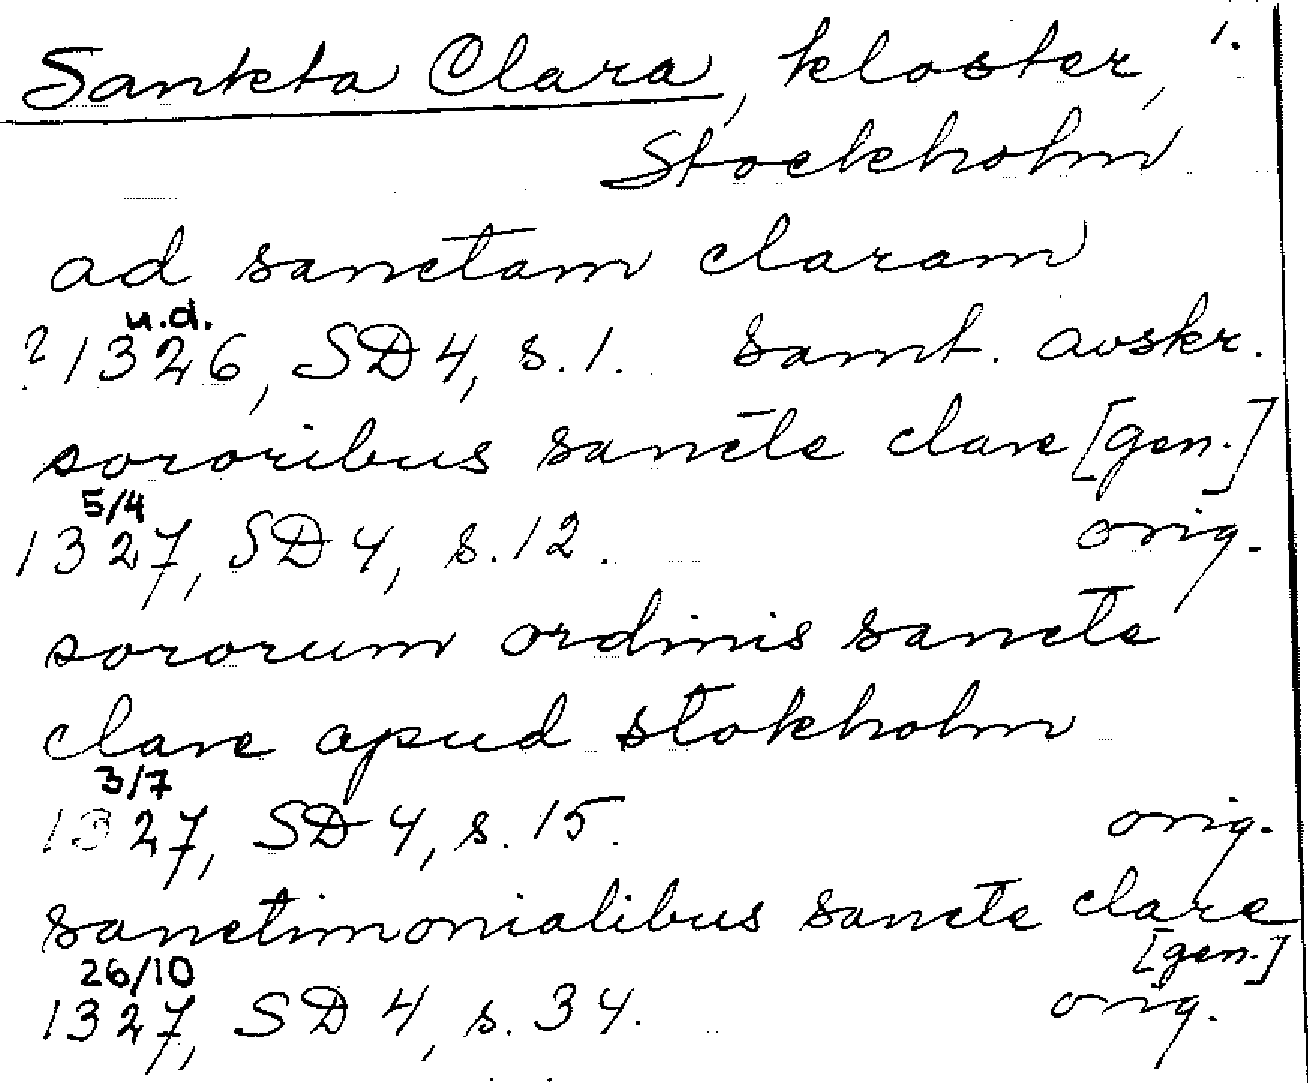 Sankta Clara, kloster, 1.
Stockholm
ad sanctam claram
u.d.
? 1326, SD 4, s. 1. samt. avskr.
sororibus sancte clare [gen.]
5/4
1327, SD 4, s. 12. orig.
sororum ordinis sancte
clare apud stokholm
3/7
1327, SD 4, s. 15. orig.
sanctimonialibus sancte clare
[gen.]
26/10
1327, SD 4, s. 34. orig.